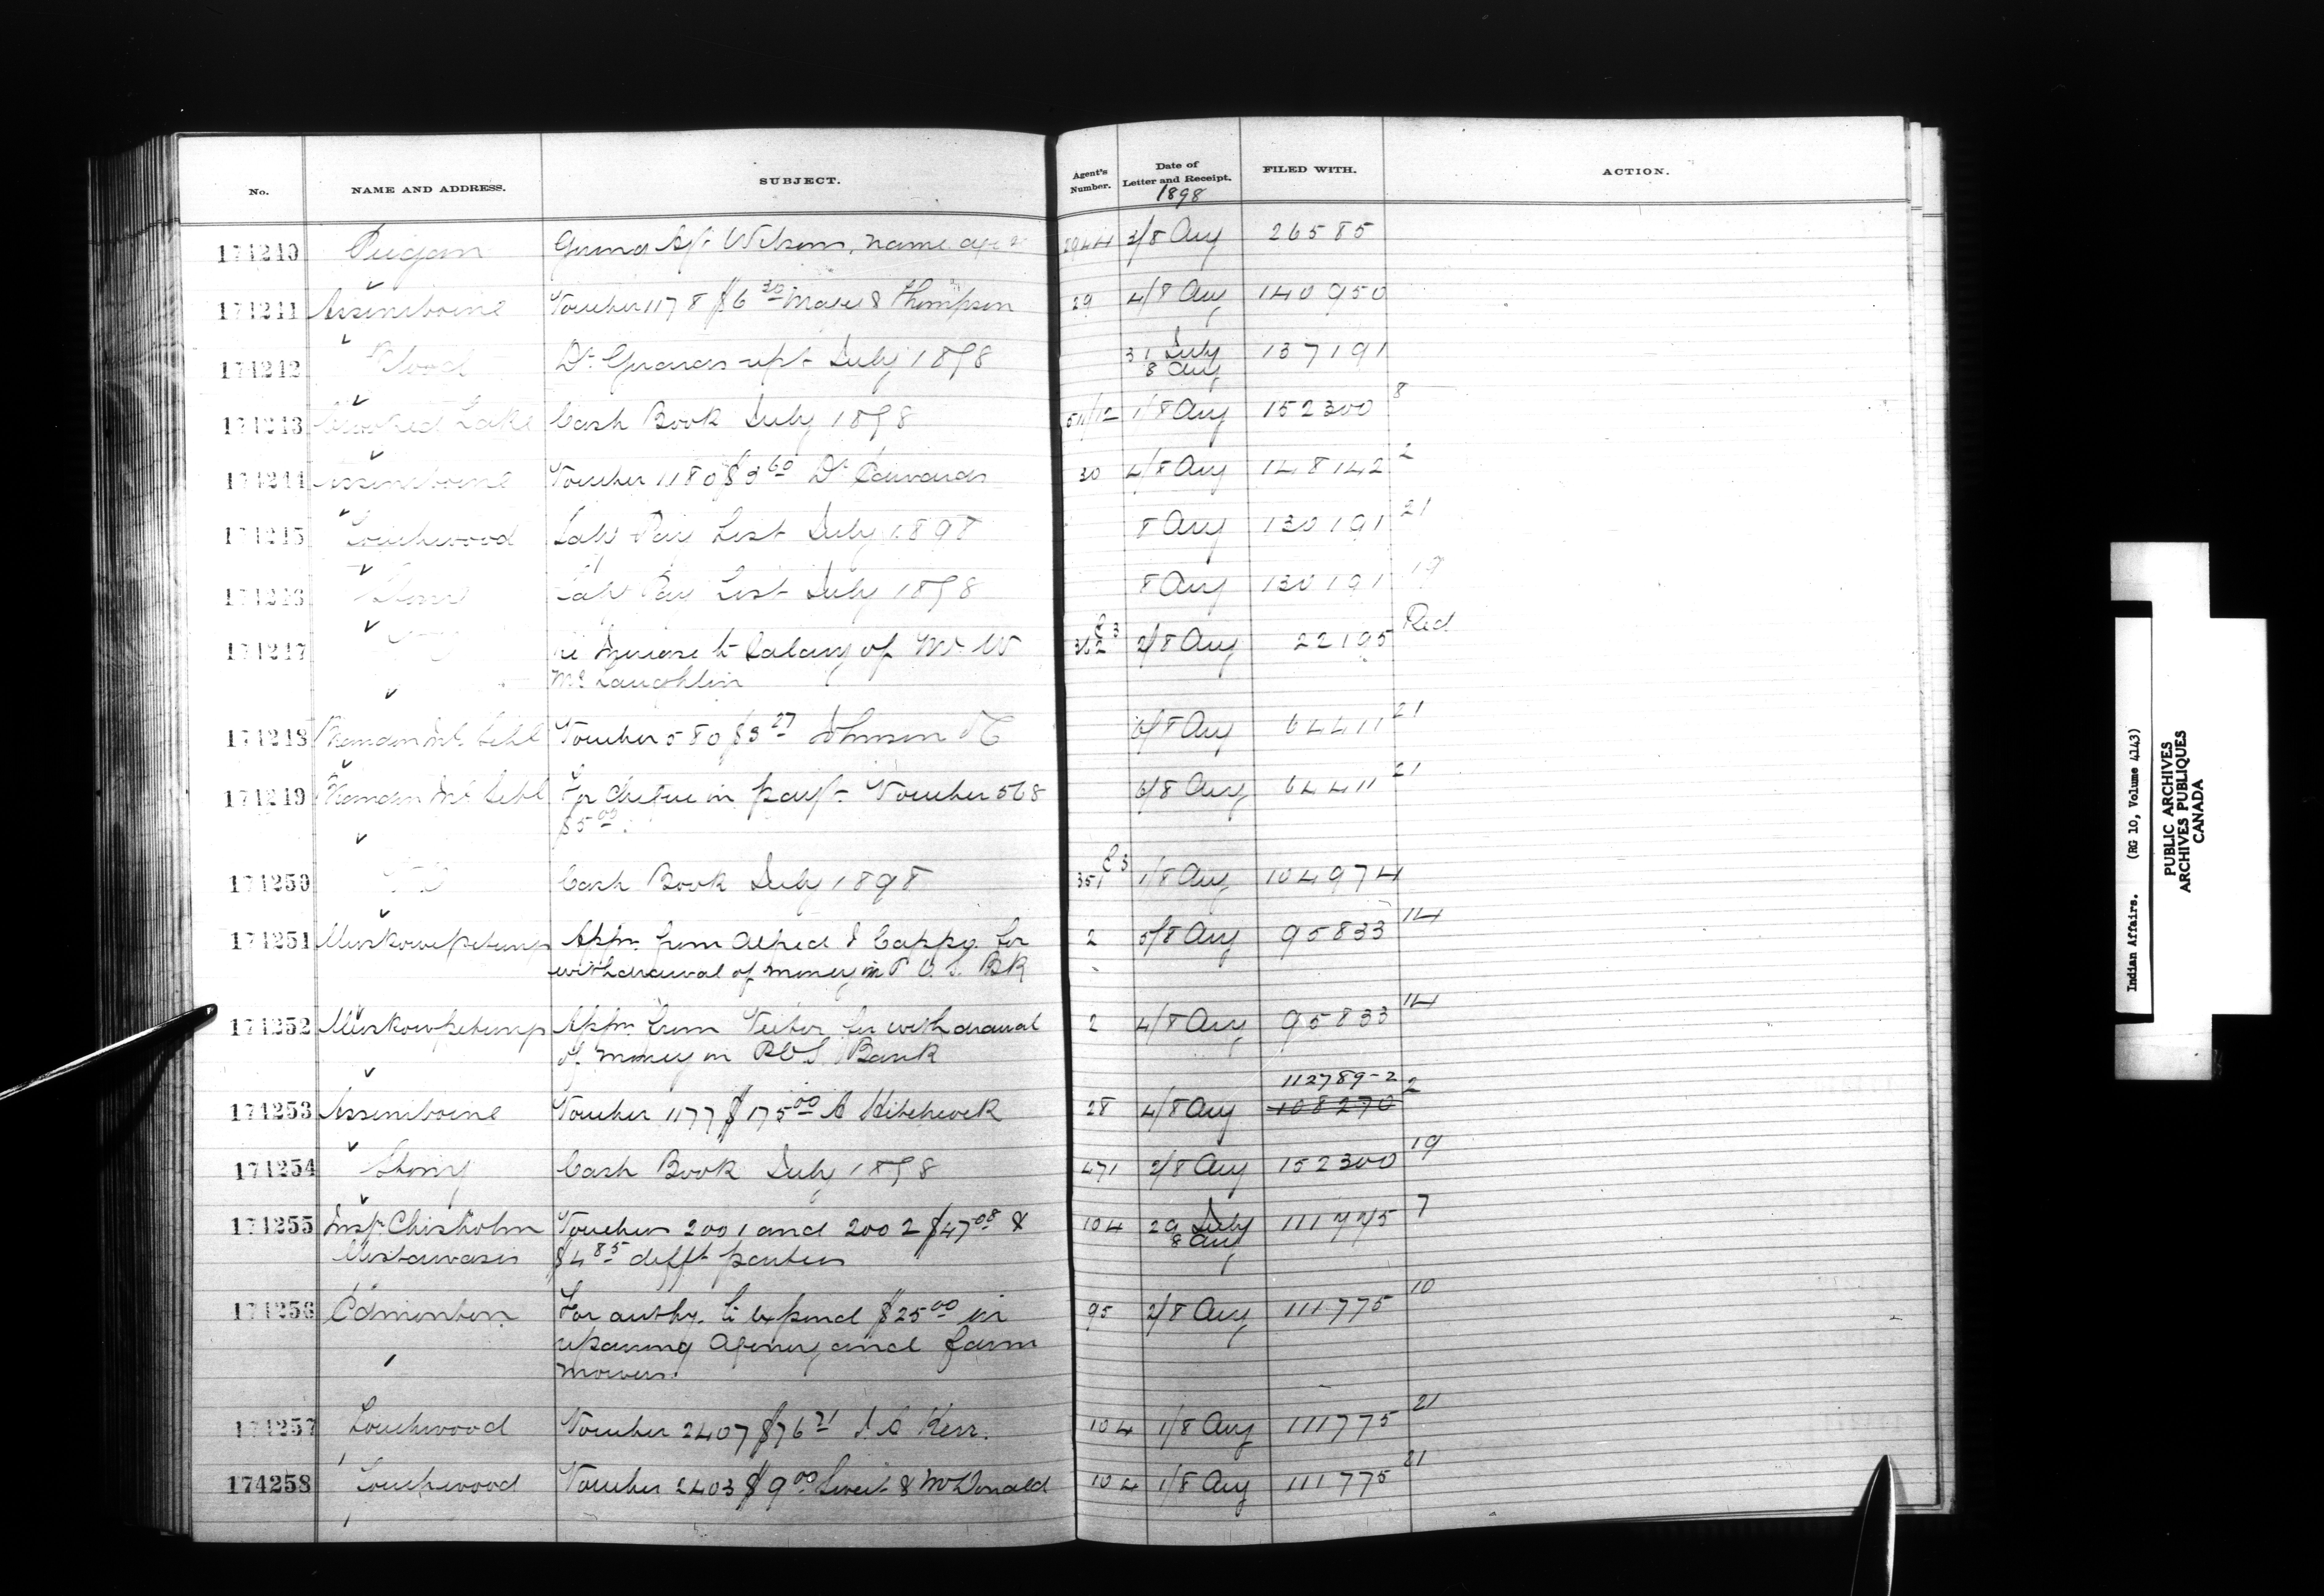 No. NAME AND ADDRESS. SUBJECT. Agent's Number. Date of Letter and Receipt. FILED WITH. ACTION.
1898
174240 Peigan Wilson, name 2044 3/8 Aug 26585
174241 Assiniboine Voucher 1178 $6 30 & Thompson 29 4/8 Aug 140950
174242 Blood Dr Girards rept July 1898 31 July 137191
8 Aug
174243 Crooked Lake Cash Book July 1898 1/8 Aug 152300 8
174244 Assiniboine Voucher 1180 $3 60 Dr Edwards 30 4/8 Aug 148142 2
174245 Touchwood Laby Pay List July 1898 8 Aug 130191 21
174246 Pay List July 1898 8 Aug 130191 19
174247 re Increase to Salary of Mr. W E3 352 2/8 Aug 22195 Red
McLaughlin
174248 Voucher 580 $3 27 Johnson & Co 6/8 Aug 64411 21
174249 For cheque in payt Voucher 568 6/8 Aug 64411 21
$5 00.
174250 Cash Book July 1898 E3 351 1/8 Aug 104974
174251 Muskowpetung Appn. from Alfred & Cappy for 2 5/8 Aug 95833 14
withdrawal of money in P.O.S. BK
174252 Muskowpetung Appn from Victor for withdrawal 2 4/8 Aug 95833 14
of money in P.O.S. Bank
112789-2
174253 Assiniboine Voucher 1177 $175 00 A Hitchcock 28 4/8 Aug 108270 2
174254 Stony Cash Book July 1898 471 2/8 Aug 152300 19
174255 Insp. Chisholm Vouchers 2001 and 2002 $47 08 & 104 29 July 111775 7
Mistawasis $4 85 difft parties 8 Aug
174256 Edmonton For authy. to expend $25 00 in 95 2/8 Aug 111775 10
repairing Agency and farm
mowers.
174257 Touchwood Voucher 2407 $76 21 Kerr. 104 1/8 Aug 111775 21
174258 Touchwood Voucher 2403 $9 00 Sweet & McDonald 104 1/8 Aug 111775 21
Indian Affairs. (RG 10, Volume 4143)
PUBLIC ARCHIVES
ARCHIVES PUBLIQUES
CANADA